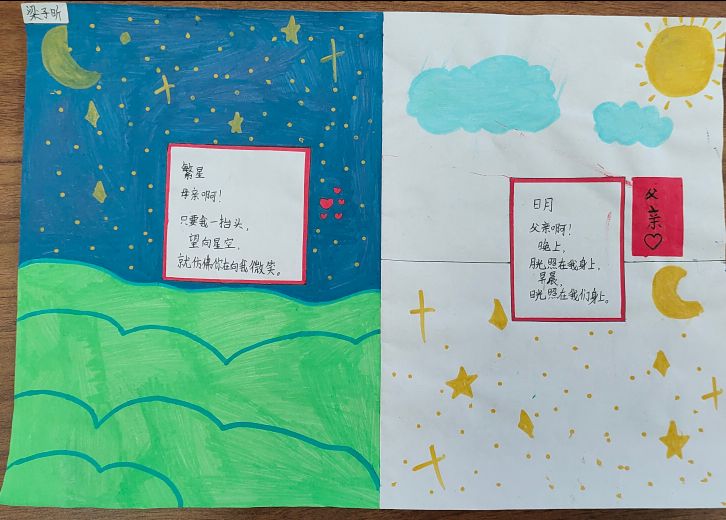 梁子昕
繁星
母亲啊！
只要我一抬头，
望向星空，
就仿佛你在向我微笑。
日月
父亲啊！
晚上，
月光照在我身上，
早晨，
日光照在我们身上。
父亲